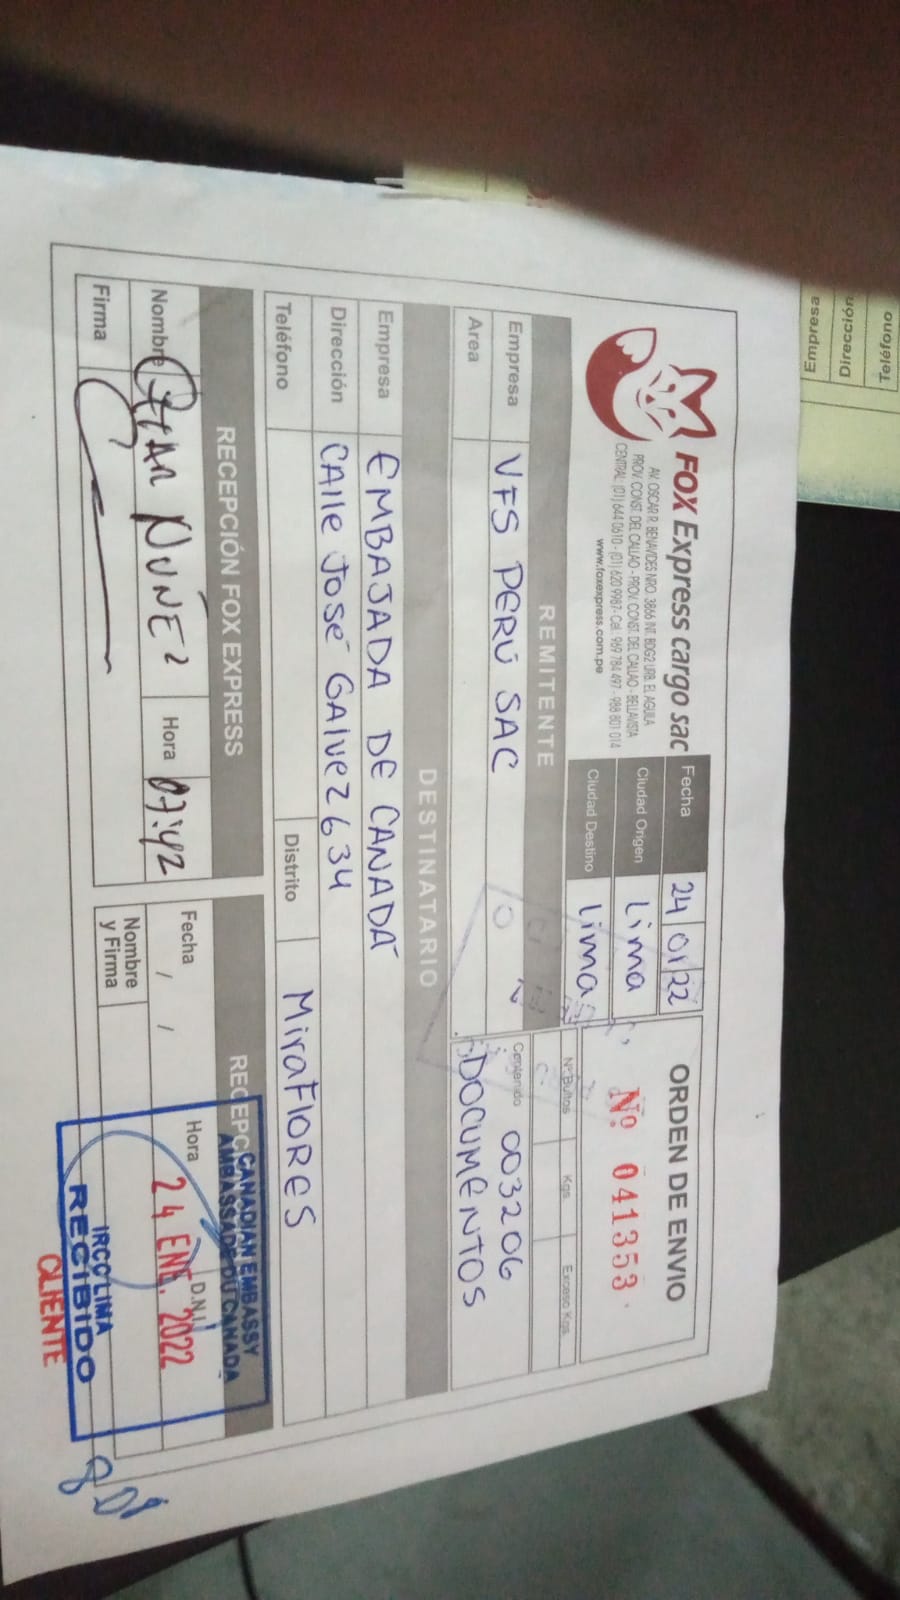 FOX Express cargo sac
AV. OSCAR R. BENAVIDES NRO. 3866 INT. BDG2 URB. EL AGUILA
PROV. CONST. DEL CALLAO - PROV. CONST. DEL CALLAO - BELLAVISTA
CENTRAL: (01) 644 0610 - (01) 620 9987 - Cel.: 969 784 497 - 988 801 014
www.foxexpress.com.pe
Fecha 24 01 22
Ciudad Origen Lima
Ciudad Destino Lima
ORDEN DE ENVIO
Nº 041353
REMITENTE
Nº Bultos Kgs Exceso Kgs.
Empresa VFS PERÚ SAC
Area
Contenido 003206
DOCUMENTOS
DESTINATARIO
Empresa EMBAJADA DE CANADÁ
Dirección CAlle José GAlvez 634
Teléfono Distrito MiraFLORES
RECEPCIÓN FOX EXPRESS
Nombre NUÑEZ Hora 07:42
Firma
RECEPC
Fecha / / Hora D.N.I.
Nombre
y Firma
CANADIAN EMBASSY
AMBASSADE DU CANADA
24 ENE. 2022
IRCC LIMA
RECIBIDO
CLIENTE
Teléfono
Dirección
Empresa